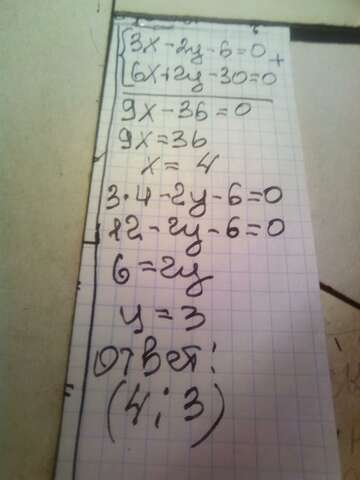 {3x-2y-6=0 +
6x+2y-30=0
9x-36=0
9x=36
x=4
3·4-2y-6=0
12-2y-6=0
6=2y
y=3
ответ:
(4;3)